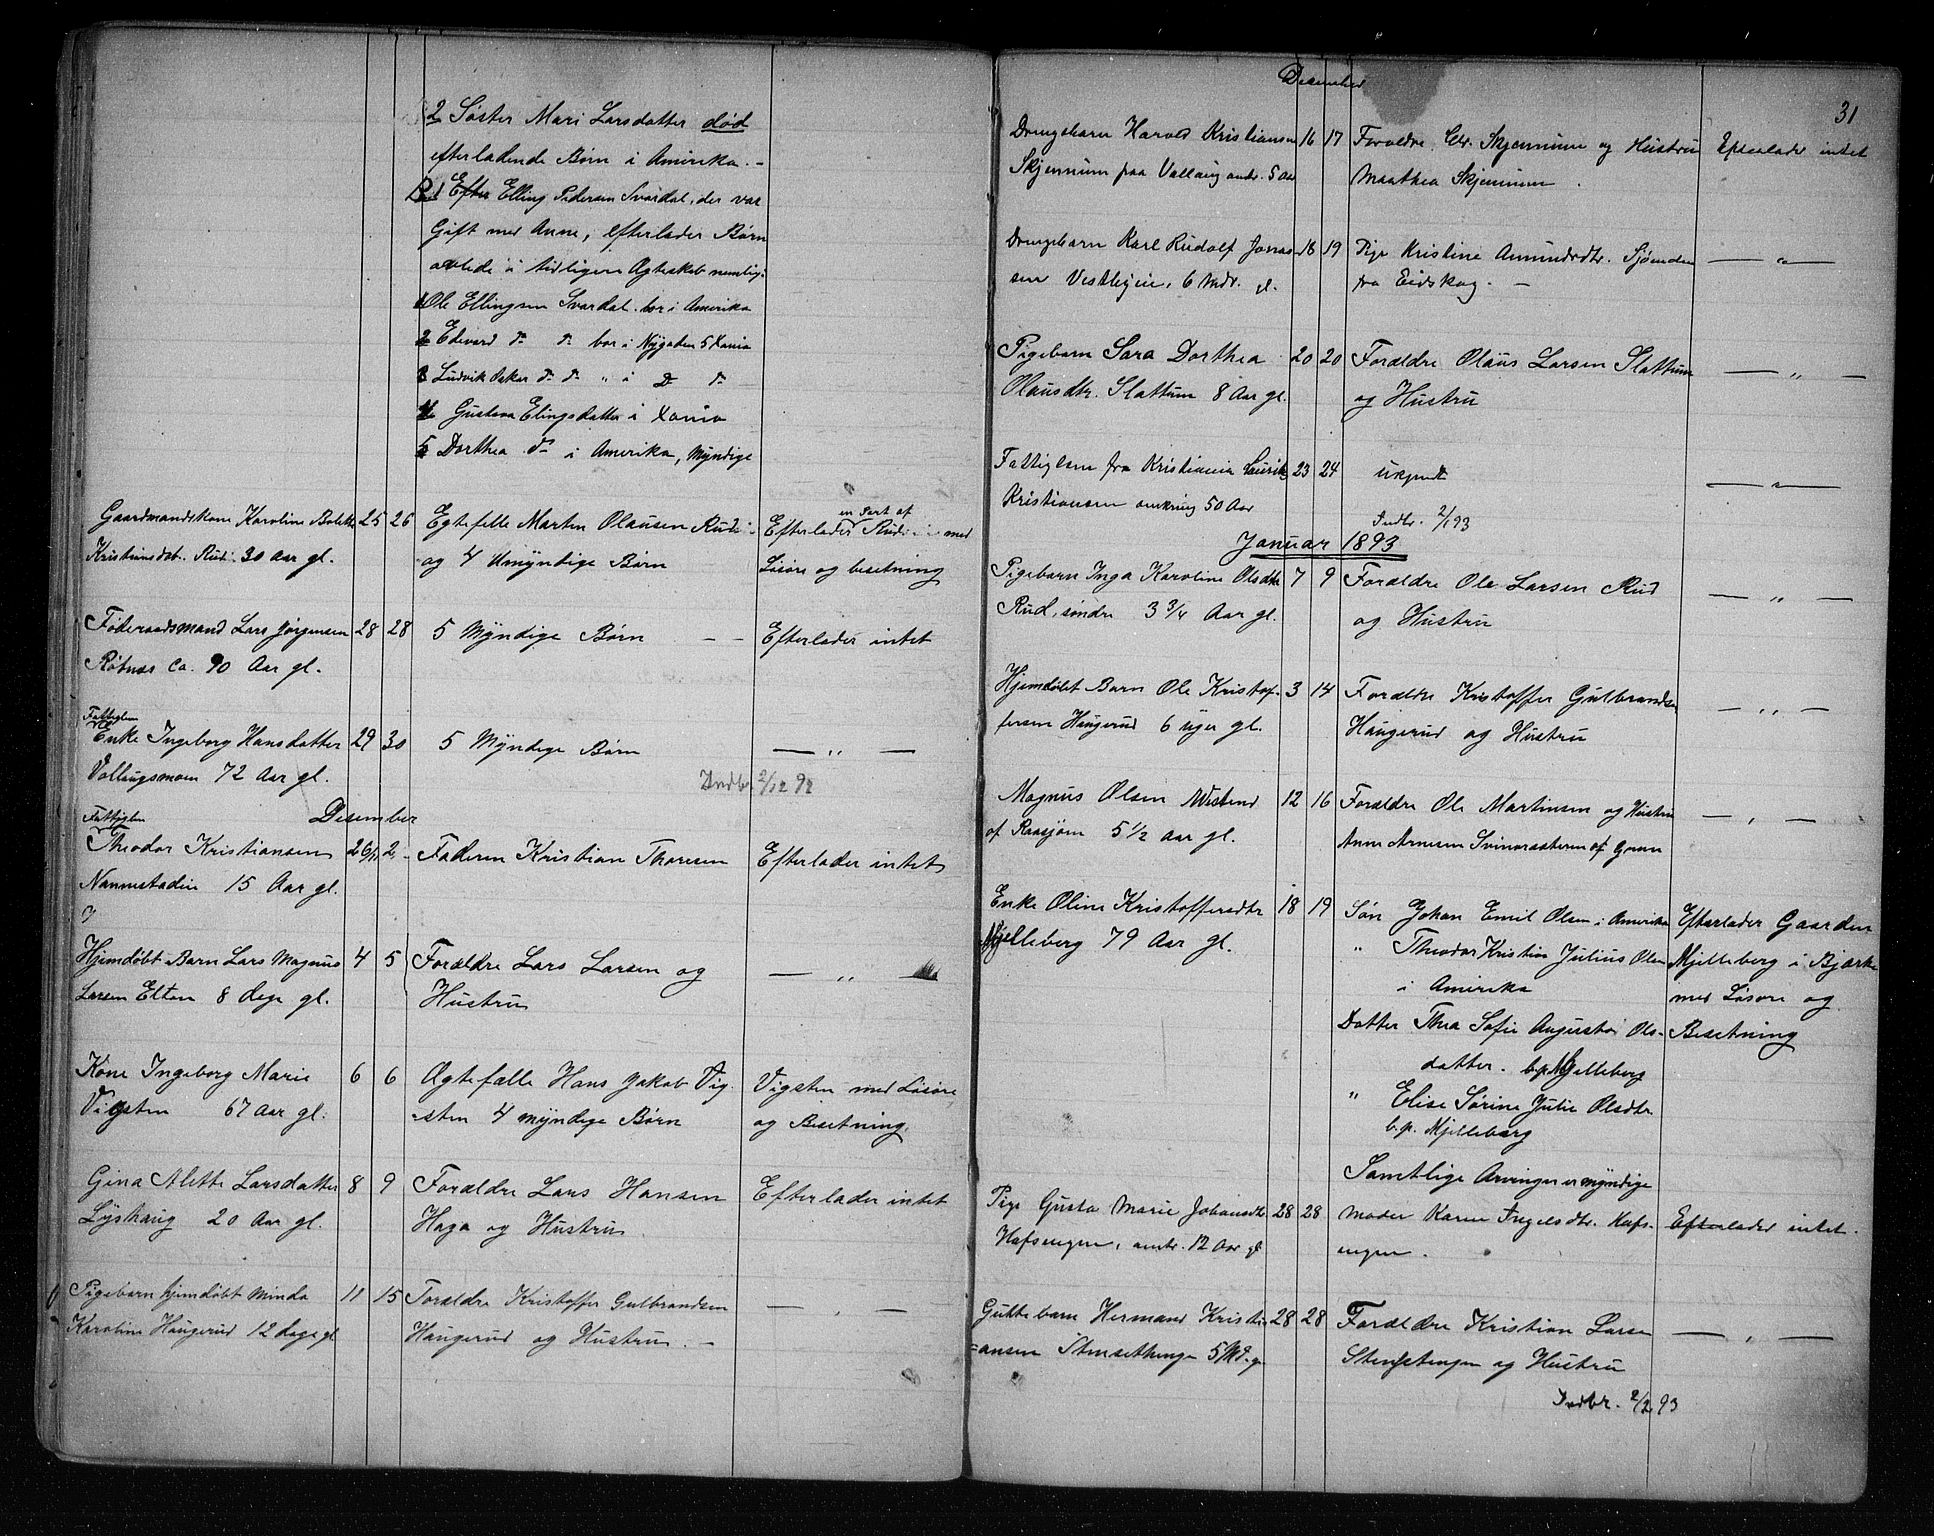 2 Søster Mari Larsdatter død
efterladende Børn i Amerika. -
Efter Elling Pedersen Svardal, der var
Gift med Anne, efterlader Børn
avlede i tidligere Ægteskab nemlig:
1 Ole Ellingsen Svardal. bor i Amerika
2 Edvard do do bor i Nygaden 5 Xania
3 Ludvik Oskar do do " i do do
4 Gustava Elingsdatter i Xania
5 Dorthea do i Amerika, Myndige
Gaardmandskone Karoline Bolette 25 26 Egtefelle Martin Olausen Rud Efterlader en Part af Rud med
Kristiansdat. Rud 30 Aar gl. og 4 Umyndige Børn Løsøre og besetning
Føderaadsmand Lars Jørgensen 28 28 5 Myndige Børn - - Efterlader intet
Røtnes ca. 90 Aar gl.
Fattiglem
Enke Ingeborg Hansdatter 29 30 5 Myndige Børn — " —
Vollaugsmoen 72 Aar gl. Indbr. 2/12 92
Desember
Fattiglem
Theodor Kristiansen 26/11 2 - Faderen Kristian Thoresen Efterlader intet
Nannestadeie 15 Aar gl.
Hjemdøbt Barn Lars Magnus 4 5 Foreldre Lars Larsen og — " —
Larsen Elton 8 dage gl. Hustru
Kone Ingeborg Marie 6 6 Ægtefælle Hans Jakob Vig- Vigsten med Løsøre
Vigsten 67 Aar gl. sten 4 myndige Børn og Besetning.
Gina Alette Larsdatter 8 9 Foreldre Lars Hansen Efterlader intet
Lyshaug 20 Aar gl. Haga og Hustru
Pigebarn hjemdøbt Minda 11 15 Foreldre Kristoffer Gulbrandsen — " —
Karoline Haugerud 12 dage gl Haugerud og Hustru. -
Desember
31
Drengebarn Harald Kristiansen 16 17 Foreldre Chr. Skjennum og Hustru Efterlader intet
Skjennum paa Vollaug omtr. 5 Aar Maathea Skjennum.
Drengebarn Karl Rudolf Jonas- 16 19 Pige Kristine Amundsdtr. Sjøenden — " —
sen Vestbyeie, 6 Mdr. gl. fra Eidskog. -
Pigebarn Sara Dorthea 20 20 Foreldre Olaus Larsen Slattum — " —
Olausdtr. Slattum 8 Aar gl. og Hustru
Fattiglem fra Kristiania Laurits 23 24 ukjendt — " —
Kristiansen omkring 50 Aar
Indbr. 2/1 93
Januar 1893
Pigebarn Inga Karoline Olsdtr 7 9 Foreldre Ole Larsen Rud — " —
Rud, søndre 3 3/4 Aar gl. og Hustru
Hjemdøbt Barn Ole Kristof- 3 14 Foreldre Kristoffer Gulbrandsen — " —
fersen Haugerud 6 uger gl. Haugerud og Hustru
Magnus Olsen 12 16 Foreldre Ole Martinsen og Hustru — " —
af Raasjøen 5 1/2 Aar gl. Anne Arnesen af Gran
Enke Oline Kristoffersdtr 18 19 Søn Johan Emil Olsen i Amerika Efterlader Gaarden
Mjelleberg 79 Aar gl. " Theodor Kristian Julius Olsen Mjelleberg i Bjærke
i Amerika med Løsøre og
Datter Thea Sofie Augusta Ols- Besetning
datter. b.p. Mjelleberg
" Elise Sørine Julie Olsdtr.
b.p. Mjelleberg
Samtlige Arvinger er myndige
Pige Gusta Marie Johansdtr 28 28 Moder Karen Ingelsdtr. Hafs- Efterlader intet.
Hafsengen, omtr. 12 Aar gl engen.
Guttebarn Hermand Kristi- 28 28 Foreldre Kristian Larsen — " —
=ansen 5 Md. gl. og Hustru
Indbr. 2/2 93